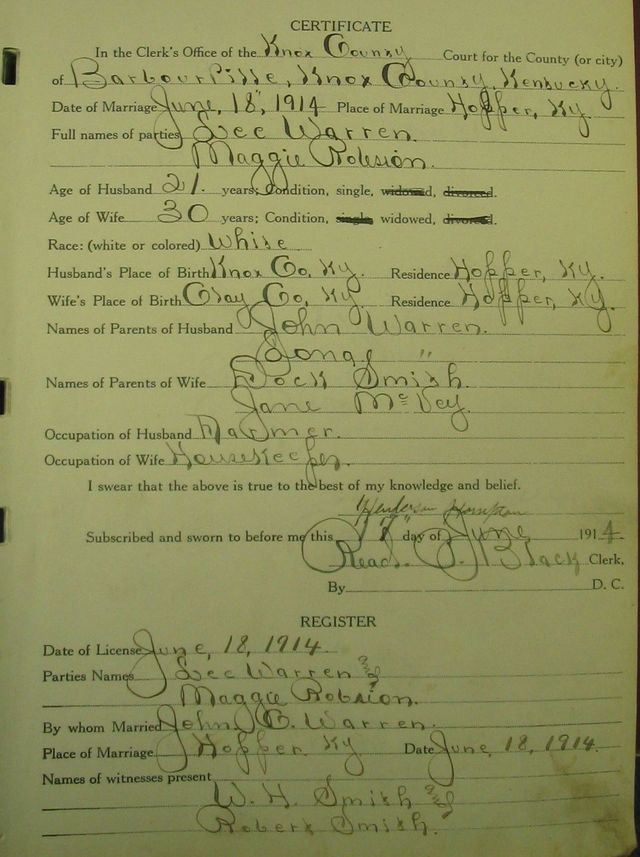 CERTIFICATE
In the Clerk's Office of the Knox County Court for the County (or city)
of Barbourville, Knox County, Kentucky.
Date of Marriage June, 18", 1914 Place of Marriage Hopper, Ky.
Full names of parties Lee Warren.
Maggie Robsion.
Age of Husband 21. years; Condition, single, widowed, divorced.
Age of Wife 30 years; Condition, single, widowed, divorced.
Race: (white or colored) White
Husband's Place of Birth Knox Co, Ky. Residence Hopper, Ky.
Wife's Place of Birth Clay Co, Ky. Residence Hopper, Ky.
Names of Parents of Husband John Warren.
"
Names of Parents of Wife Dock Smith.
Jane McVey.
Occupation of Husband Farmer.
Occupation of Wife Housekeeper.
I swear that the above is true to the best of my knowledge and belief.
Henderson Hampton
Subscribed and sworn to before me this day of June 1914.
Read. P. Black Clerk.
By D. C.
REGISTER
Date of License June, 18, 1914.
Parties Names Lee Warren &
Maggie Robsion.
By whom Married John C. Warren.
Place of Marriage Hopper Ky Date June, 18, 1914.
Names of witnesses present
W. H. Smith &
Robert Smith.